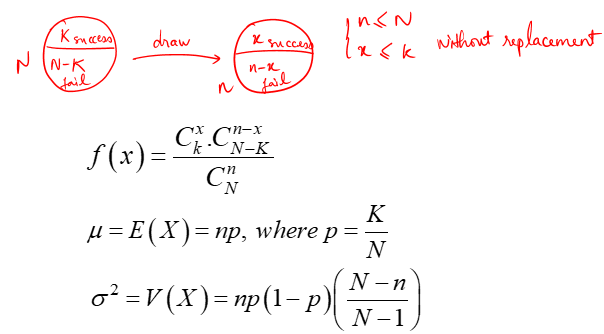 N K success N-K fail draw n x success n-x fail { n ≤ N x ≤ k without replacement
f(x) = \frac{C_k^x . C_{N-K}^{n-x}}{C_N^n}
μ = E(X) = np, where p = \frac{K}{N}
σ² = V(X) = np(1-p)\left(\frac{N-n}{N-1}\right)